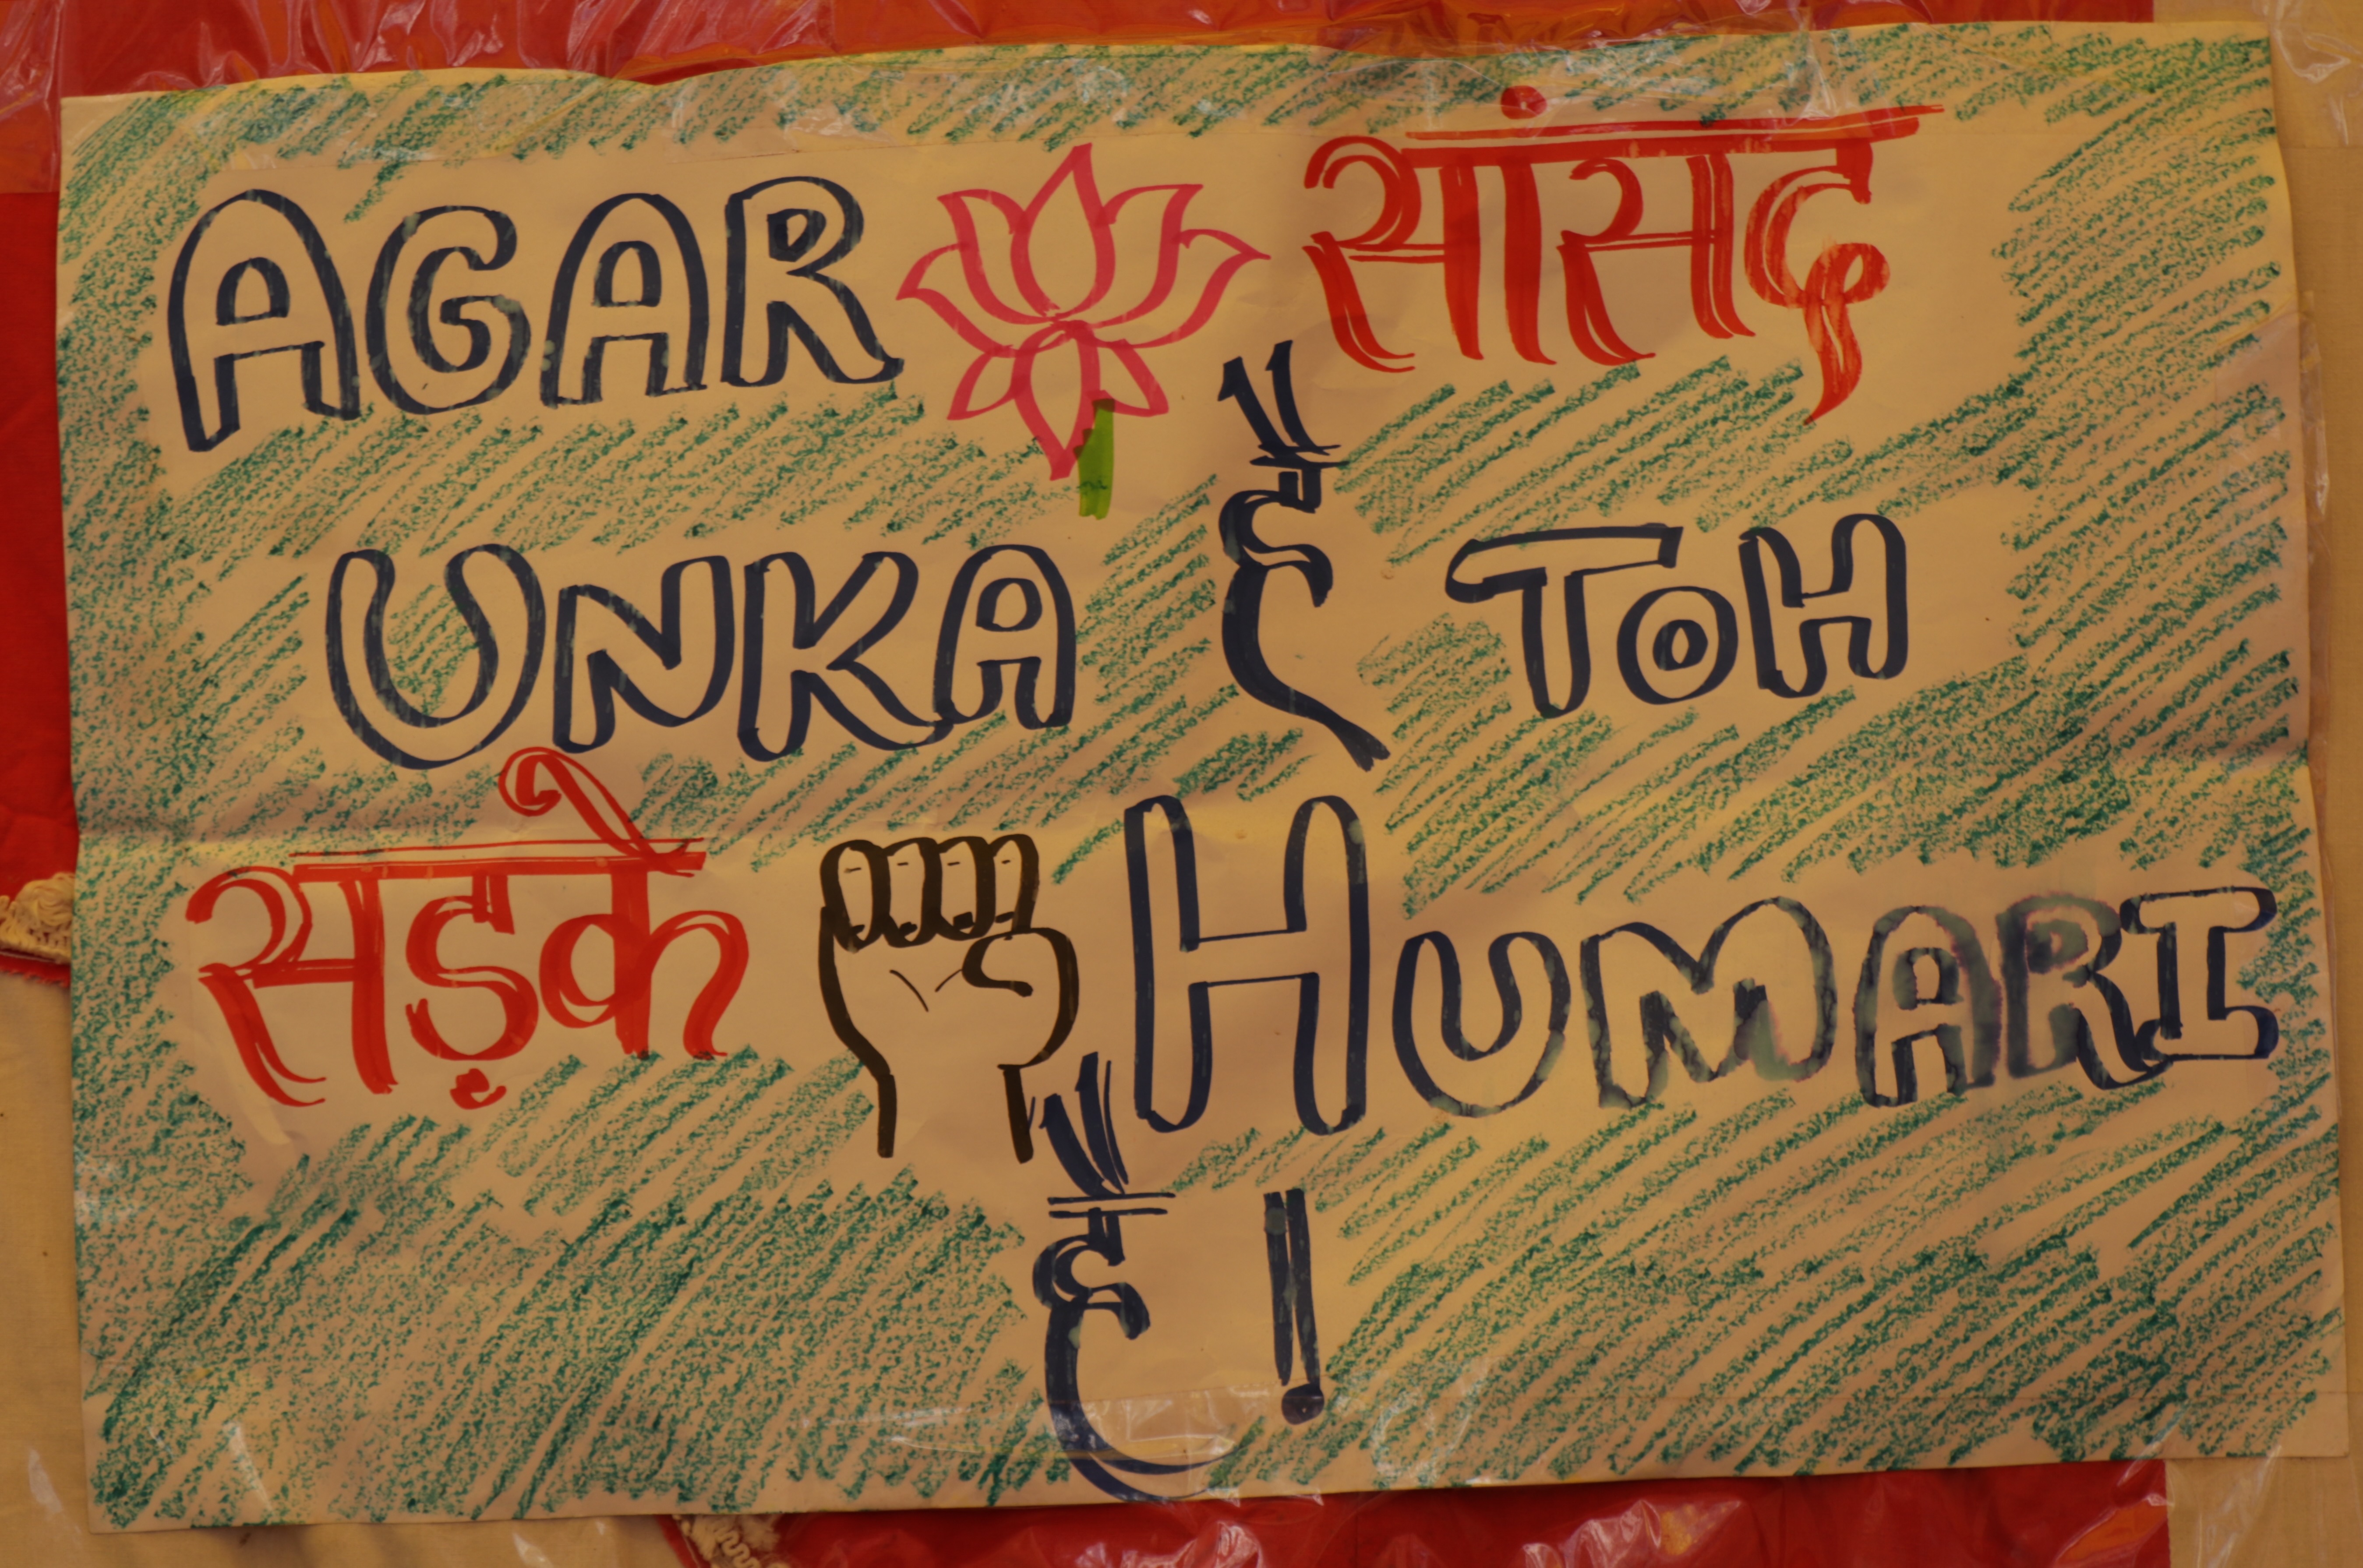 AGAR सांसद
UNKA है TOH
सड़के HUMARI
है !